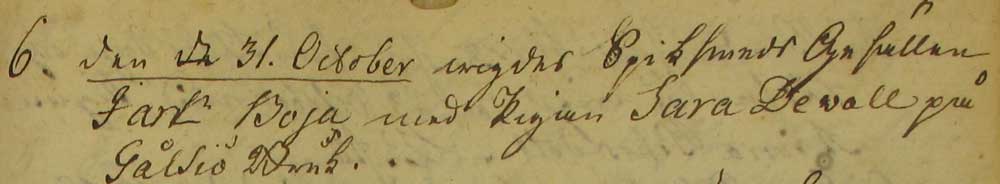 6. den de 31. October wigdes Spiksmeds Gesällen
Boja med Pigan Sara Dewall på
Gålsiö Bruk.